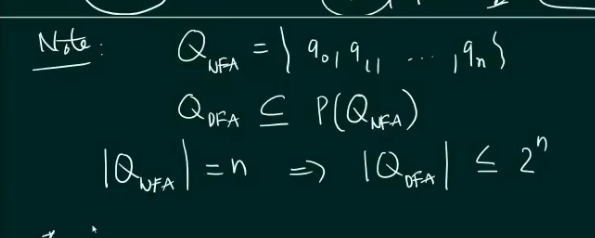 Note: Q_NFA = { q₀, q₁, ... , qₙ }
Q_DFA ⊆ P(Q_NFA)
|Q_NFA| = n ⇒ |Q_DFA| ≤ 2ⁿ